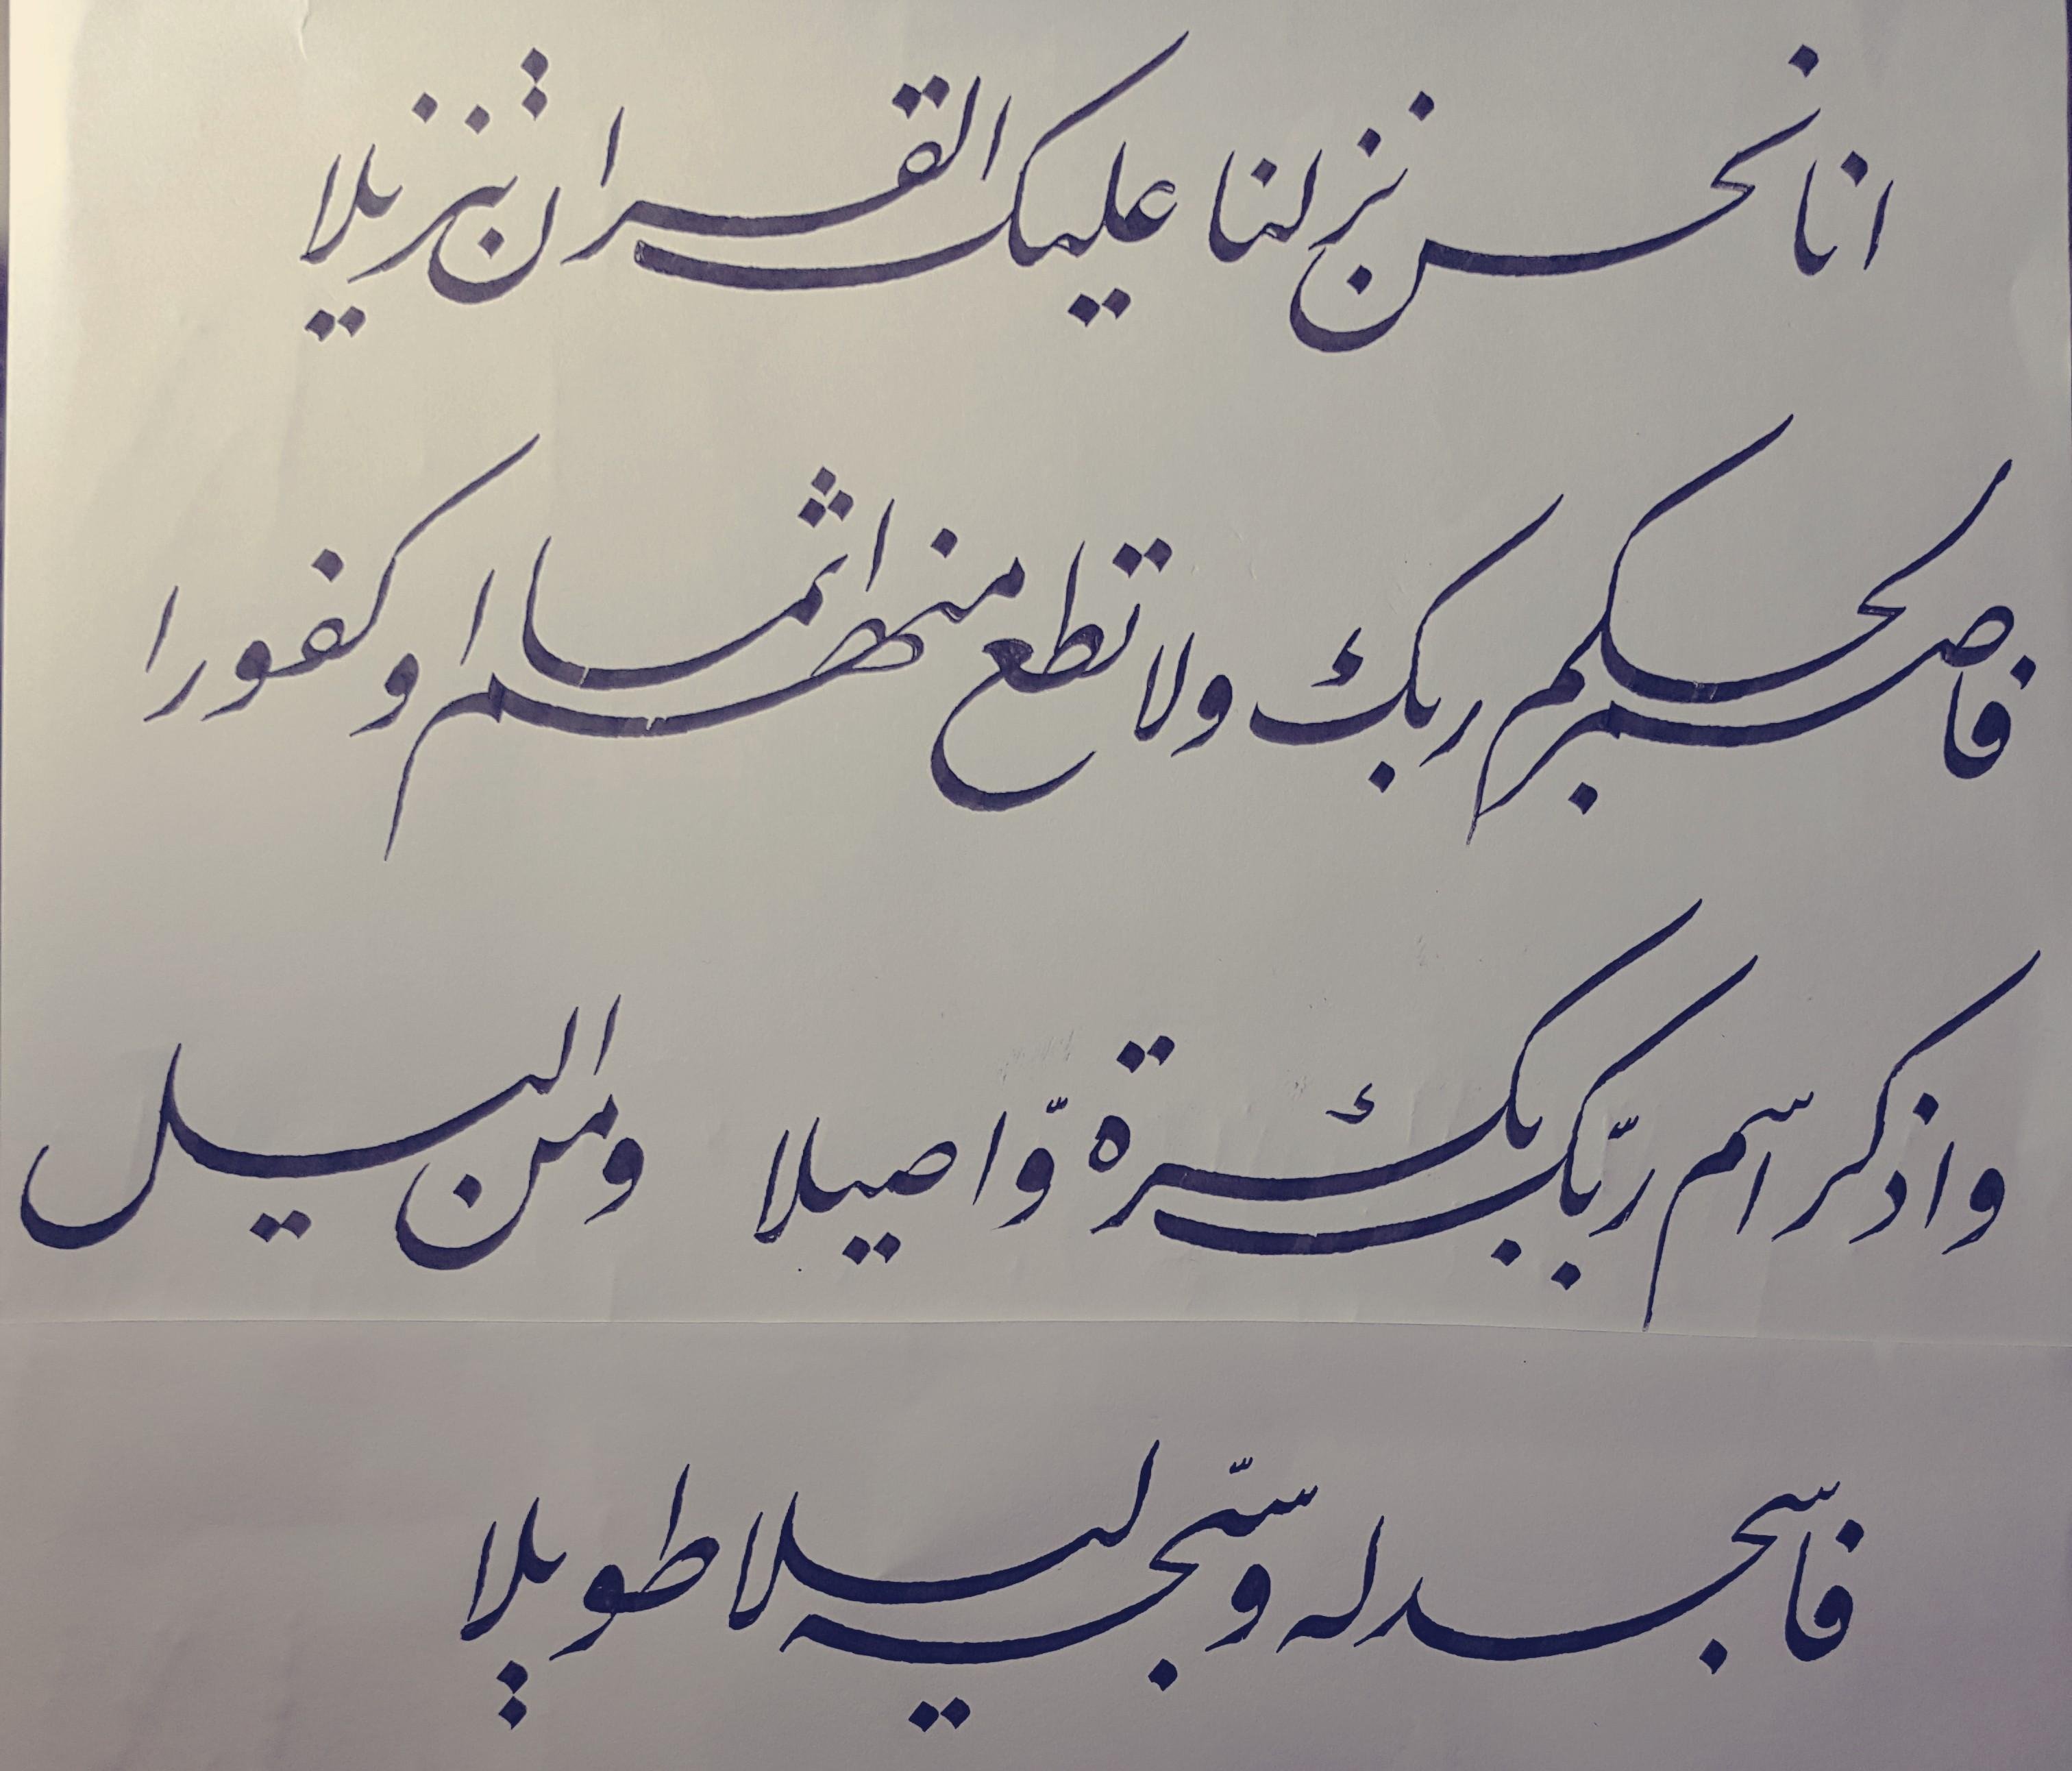 انا نحن نزلنا علیک القران تنزیلا
فاصبر لحکم ربک ولا تطع منهم اثما او کفورا
واذکر اسم ربّک بکرة وّاصیلا ومن الیل
فاسجد له وسبّحه لیلا طویلا